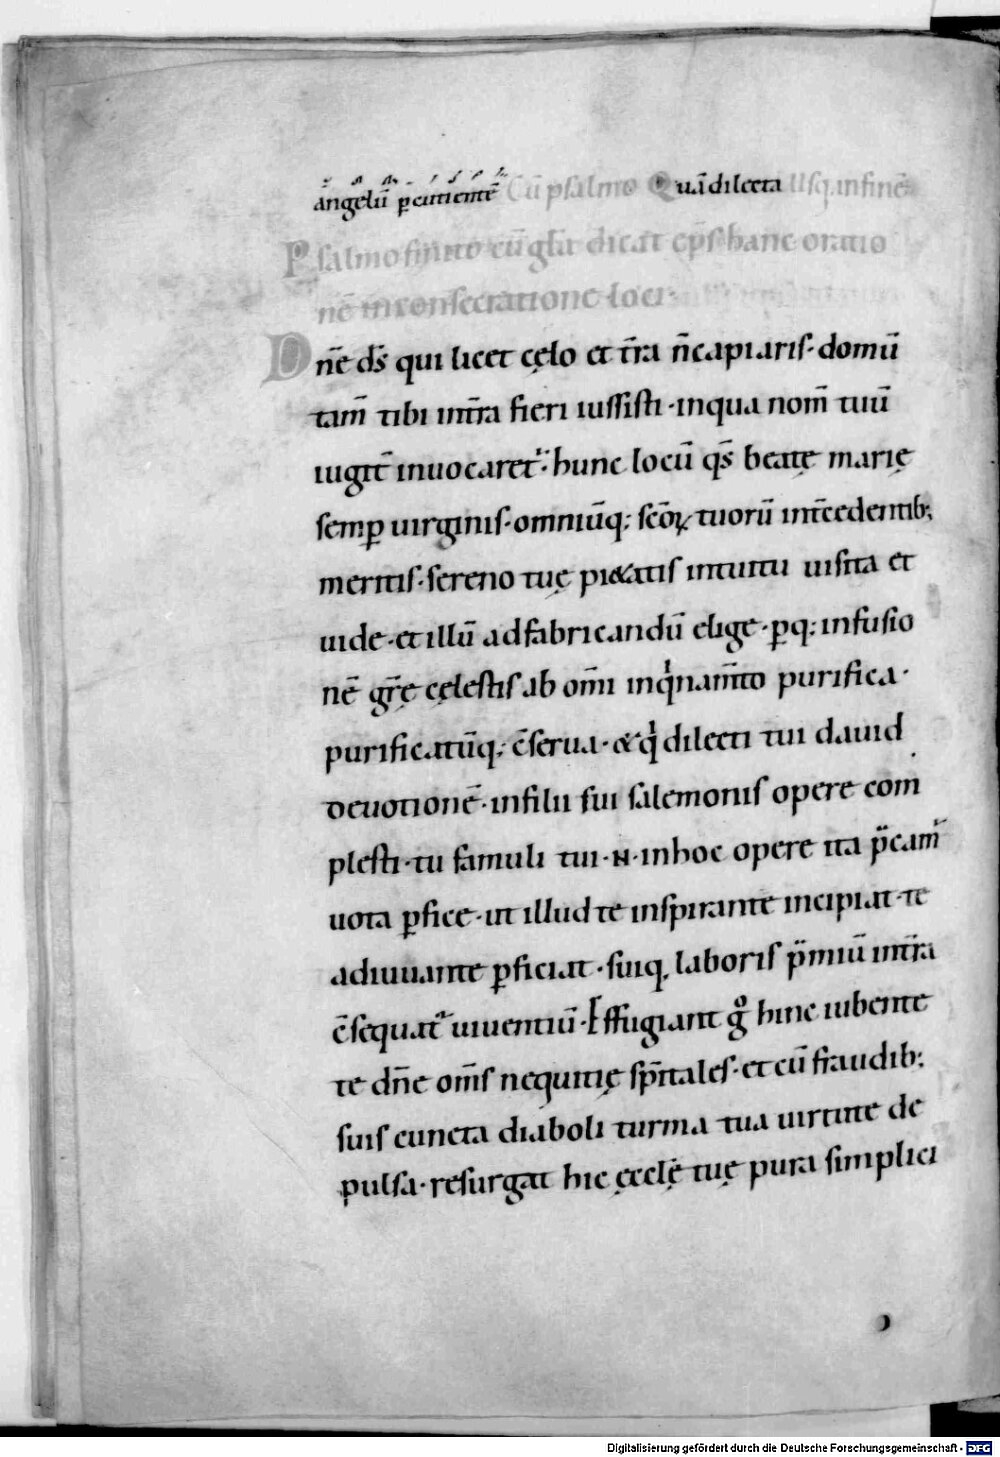 angelū ꝑcutientē Cū psalmo Quā dilecta Usq. in finē
Psalmo finito cū gƚa dicat ep̄s hanc oratio
nē in consecratione loci.
Dn̄e d̄s qui licet cęlo et t̄ra n̄ capiaris· domū
tam̄ tibi int̄ra fieri iussisti· in qua nom̄ tuū
iugit̄ inuocaret᷑· hunc locū q̄s beatę marię
semꝑ uirginis· omniūq; sc̄oꝝ tuorū int̄cedentib;
meritis· sereno tuę pi&atis intuitu uisita et
uide· et illū ad fabricandū elige· ꝑq; infusio
nē gr̄ę cęlestis ab om̄i inqͥnam̄to purifica·
purificatūq; c̄serua· & qͥ dilecti tui dauid
deuotionē· in filii sui salemonis opere com
plesti· tu famuli tui ·N· in hoc opere ita p̄cam᷑
uota ꝑfice· ut illud te inspirante incipiat· te
adiuuante ꝑficiat· suiq, laboris p̄miū int̄ra
c̄sequat᷑ uiuentiū· Effugiant gͦ hinc iubente
te dn̄e om̄s nequitię sp̄itales· et cū fraudib;
suis cuncta diaboli turma tua uirtute de
pulsa· resurgat hic ęcclę̄ tuę pura simplici
Digitalisierung gefördert durch die Deutsche Forschungsgemeinschaft - DFG